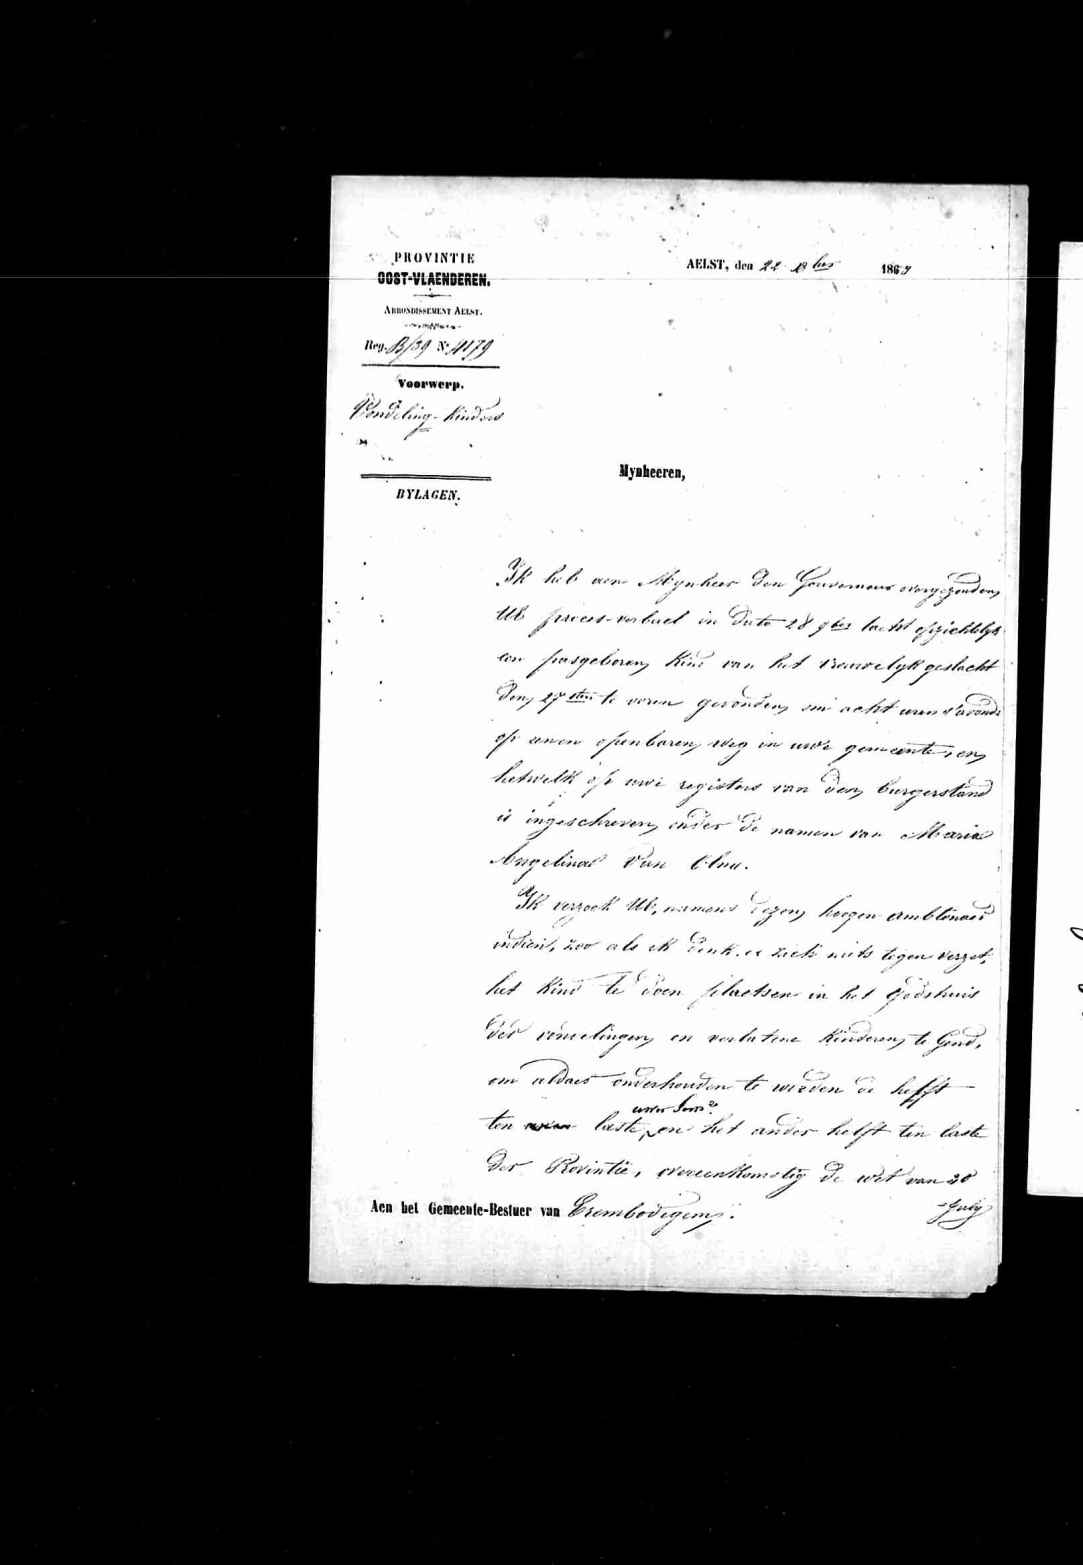 PROVINTIE
OOST-VLAENDEREN.
ARRONDISSEMENT AELST.
Reg. B/39 N° 4179
Voorwerp.
Vondeling-Kinders
BYLAGEN.
AELST, den 22 Xber 1869
Mynheeren,
Ik heb aen Mynheer den Gouverneur overgezonden
UE proces-verbael in dato 28 9ber laetst opzichtelyk
een pasgeboren Kind van het vrouwelyk geslacht
den 27sten te voren gevonden om acht uren s'avonds
op eenen openbaren weg in uwe gemeente, en
hetwelk op uwe registers van den burgerstand
is ingeschreven onder de namen van Maria
Angelina Van
Ik verzoek UE, namens dezen hoogen ambtenaer
indien, zoo als ik denk, er zich niets tegen verzet,
het Kind te doen plaetsen in het Godshuis
der vondelingen en verlatene Kinderen te Gend,
om aldaer onderhouden te worden de helft
ten laste, en het ander helft ten laste
der Provintie, overeenkomstig de wet van 30
July
Aen het Gemeente-Bestuer van Erembodegem.